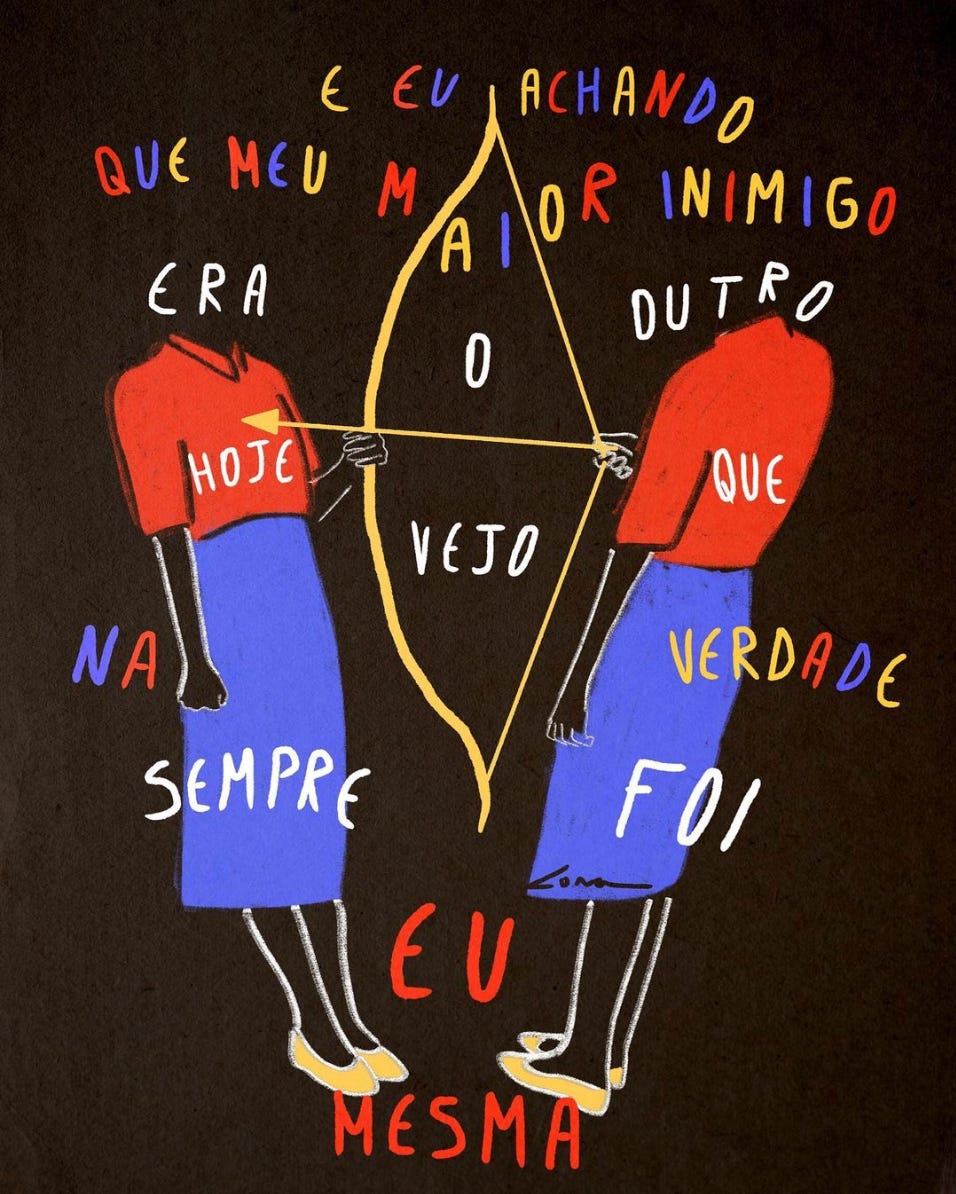 E EU ACHANDO
QUE MEU MAIOR INIMIGO
ERA O OUTRO
HOJE VEJO QUE
NA VERDADE
SEMPRE FOI
EU
MESMA